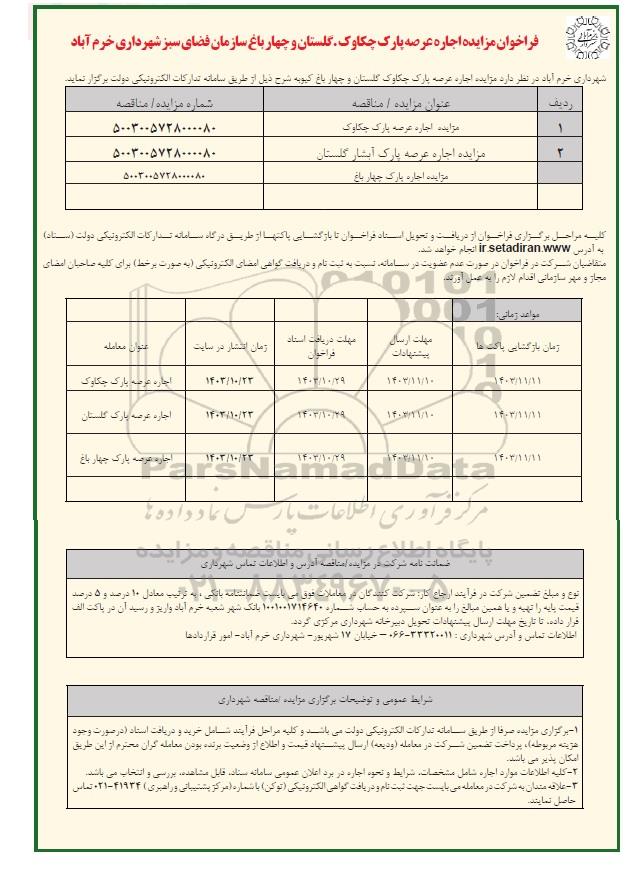 فراخوان مزایده اجاره عرصه پارک چکاوک ، گلستان و چهار باغ سازمان فضای سبز شهرداری خرم آباد
شهرداری خرم آباد در نظر دارد مزایده اجاره عرصه پارک چکاوک گلستان و چهار باغ کیوبه شرح ذیل از طریق سامانه تدارکات الکترونیکی دولت برگزار نماید.
ردیف عنوان مزایده / مناقصه شماره مزایده/ مناقصه
۱ مزایده اجاره عرصه پارک چکاوک ۵۰۰۳۰۰۵۷۲۸۰۰۰۰۸۰
۲ مزایده اجاره عرصه پارک آبشار گلستان ۵۰۰۳۰۰۵۷۲۸۰۰۰۰۸۰
مزایده اجاره پارک چهار باغ ۵۰۰۳۰۰۵۷۲۸۰۰۰۰۸۰
کلیـه مراحـل برگـزاری فراخـوان از دریافـت و تحویل اسـناد فراخـوان تا بازگشـایی پاکتهـا از طریـق درگاه سـامانه تـدارکات الکترونیکی دولت (سـتاد)
به آدرس ir.setadiran.www انجام خواهد شد.
متقاضیان شـرکت در فراخوان در صورت عدم عضویت در سـامانه، نسبت به ثبت نام و دریافت گواهی امضای الکترونیکی (به صورت برخط) برای کلیه صاحبان امضای
مجاز و مهر سازمانی اقدام لازم را به عمل آورند.
مواعد زمانی:
زمان بازگشایی پاکت ها مهلت ارسال پیشنهادات مهلت دریافت اسناد فراخوان زمان انتشار در سایت عنوان معامله
۱۴۰۳/۱۱/۱۱ ۱۴۰۳/۱۱/۱۰ ۱۴۰۳/۱۰/۲۹ ۱۴۰۳/۱۰/۲۳ اجاره عرصه پارک چکاوک
۱۴۰۳/۱۱/۱۱ ۱۴۰۳/۱۱/۱۰ ۱۴۰۳/۱۰/۲۹ ۱۴۰۳/۱۰/۲۳ اجاره عرصه پارک گلستان
۱۴۰۳/۱۱/۱۱ ۱۴۰۳/۱۱/۱۰ ۱۴۰۳/۱۰/۲۹ ۱۴۰۳/۱۰/۲۳ اجاره عرصه پارک چهار باغ
ParsNamadData
مرکز فرآوری اطلاعات پارس نماد داده ها
پایگاه اطلاع رسانی مناقصه و مزایده
ضمانت نامه شرکت در مزایده/مناقصه آدرس و اطلاعات تماس شهرداری
۰۲۱-۸۸۳۴۹۶۷۰-۵
نوع و مبلغ تضمین شرکت در فرآیند ارجاع کار: شرکت کنندگان در معاملات فوق می بایست ضمانتنامه بانکی ، به ترتیب معادل ۱۰ درصد و ۵ درصد
قیمت پایه را تهیه و یا همین مبالغ را به عنوان سـپرده به حساب شـماره ۱۰۰۱۰۰۱۷۱۴۶۴۰ بانک شهر شعبه خرم آباد واریز و رسید آن در پاکت الف
قرار داده، تا تاریخ مهلت ارسال پیشنهادات تحویل دبیرخانه شهرداری مرکزی گردد.
اطلاعات تماس و آدرس شهرداری : ۳۳۳۲۰۰۱۱-۰۶۶ – خیابان ۱۷ شهریور- شهرداری خرم آباد- امور قراردادها
شرایط عمومی و توضیحات برگزاری مزایده /مناقصه شهرداری
۱-برگزاری مزایده صرفا از طریق سـامانه تدارکات الکترونیکی دولت می باشـد و کلیه مراحل فرآیند شـامل خرید و دریافت اسناد (درصورت وجود
هزینه مربوطه)، پرداخت تضمین شـرکت در معامله (ودیعه) ارسال پیشـنهاد قیمت و اطلاع از وضعیت برنده بودن معامله گران محترم از این طریق
امکان پذیر می باشد.
۲-کلیه اطلاعات موارد اجاره شامل مشخصات، شرایط و نحوه اجاره در برد اعلان عمومی سامانه ستاد، قابل مشاهده، بررسی و انتخاب می باشد.
۳-علاقه مندان به شرکت در معامله می بایست جهت ثبت نام و دریافت گواهی الکترونیکی (توکن) با شماره (مرکز پشتیبانی و راهبری ) ۴۱۹۳۴-۰۲۱ تماس
حاصل نمایند.